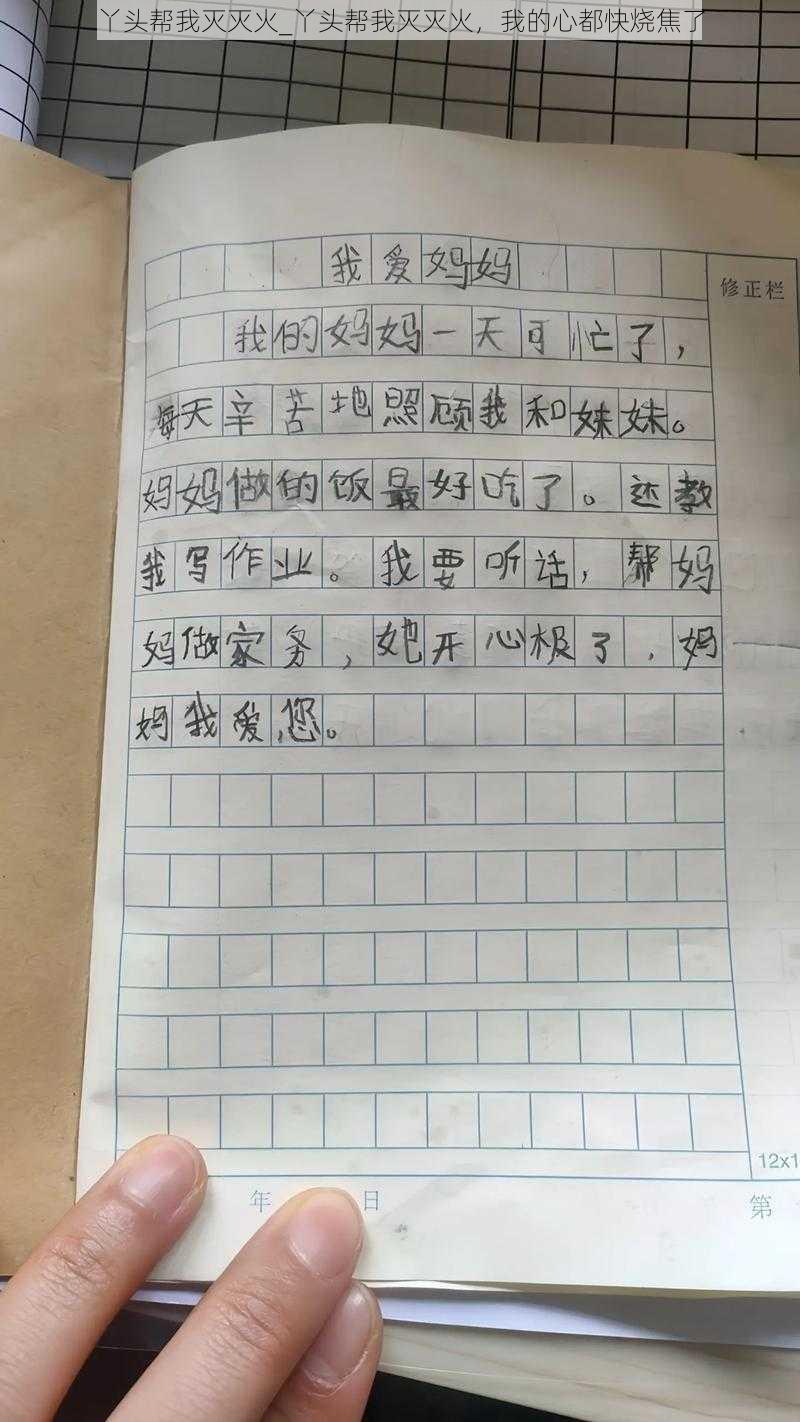 丫头帮我灭灭火_丫头帮我灭灭火，我的心都快烧焦了
我爱妈妈
修正栏
我的妈妈一天可忙了，
每天辛苦地照顾我和妹妹。
妈妈做的饭最好吃了。还教
我写作业。我要听话，帮妈
妈做家务，她开心极了，妈
妈我爱您。
12x1
年 日
第